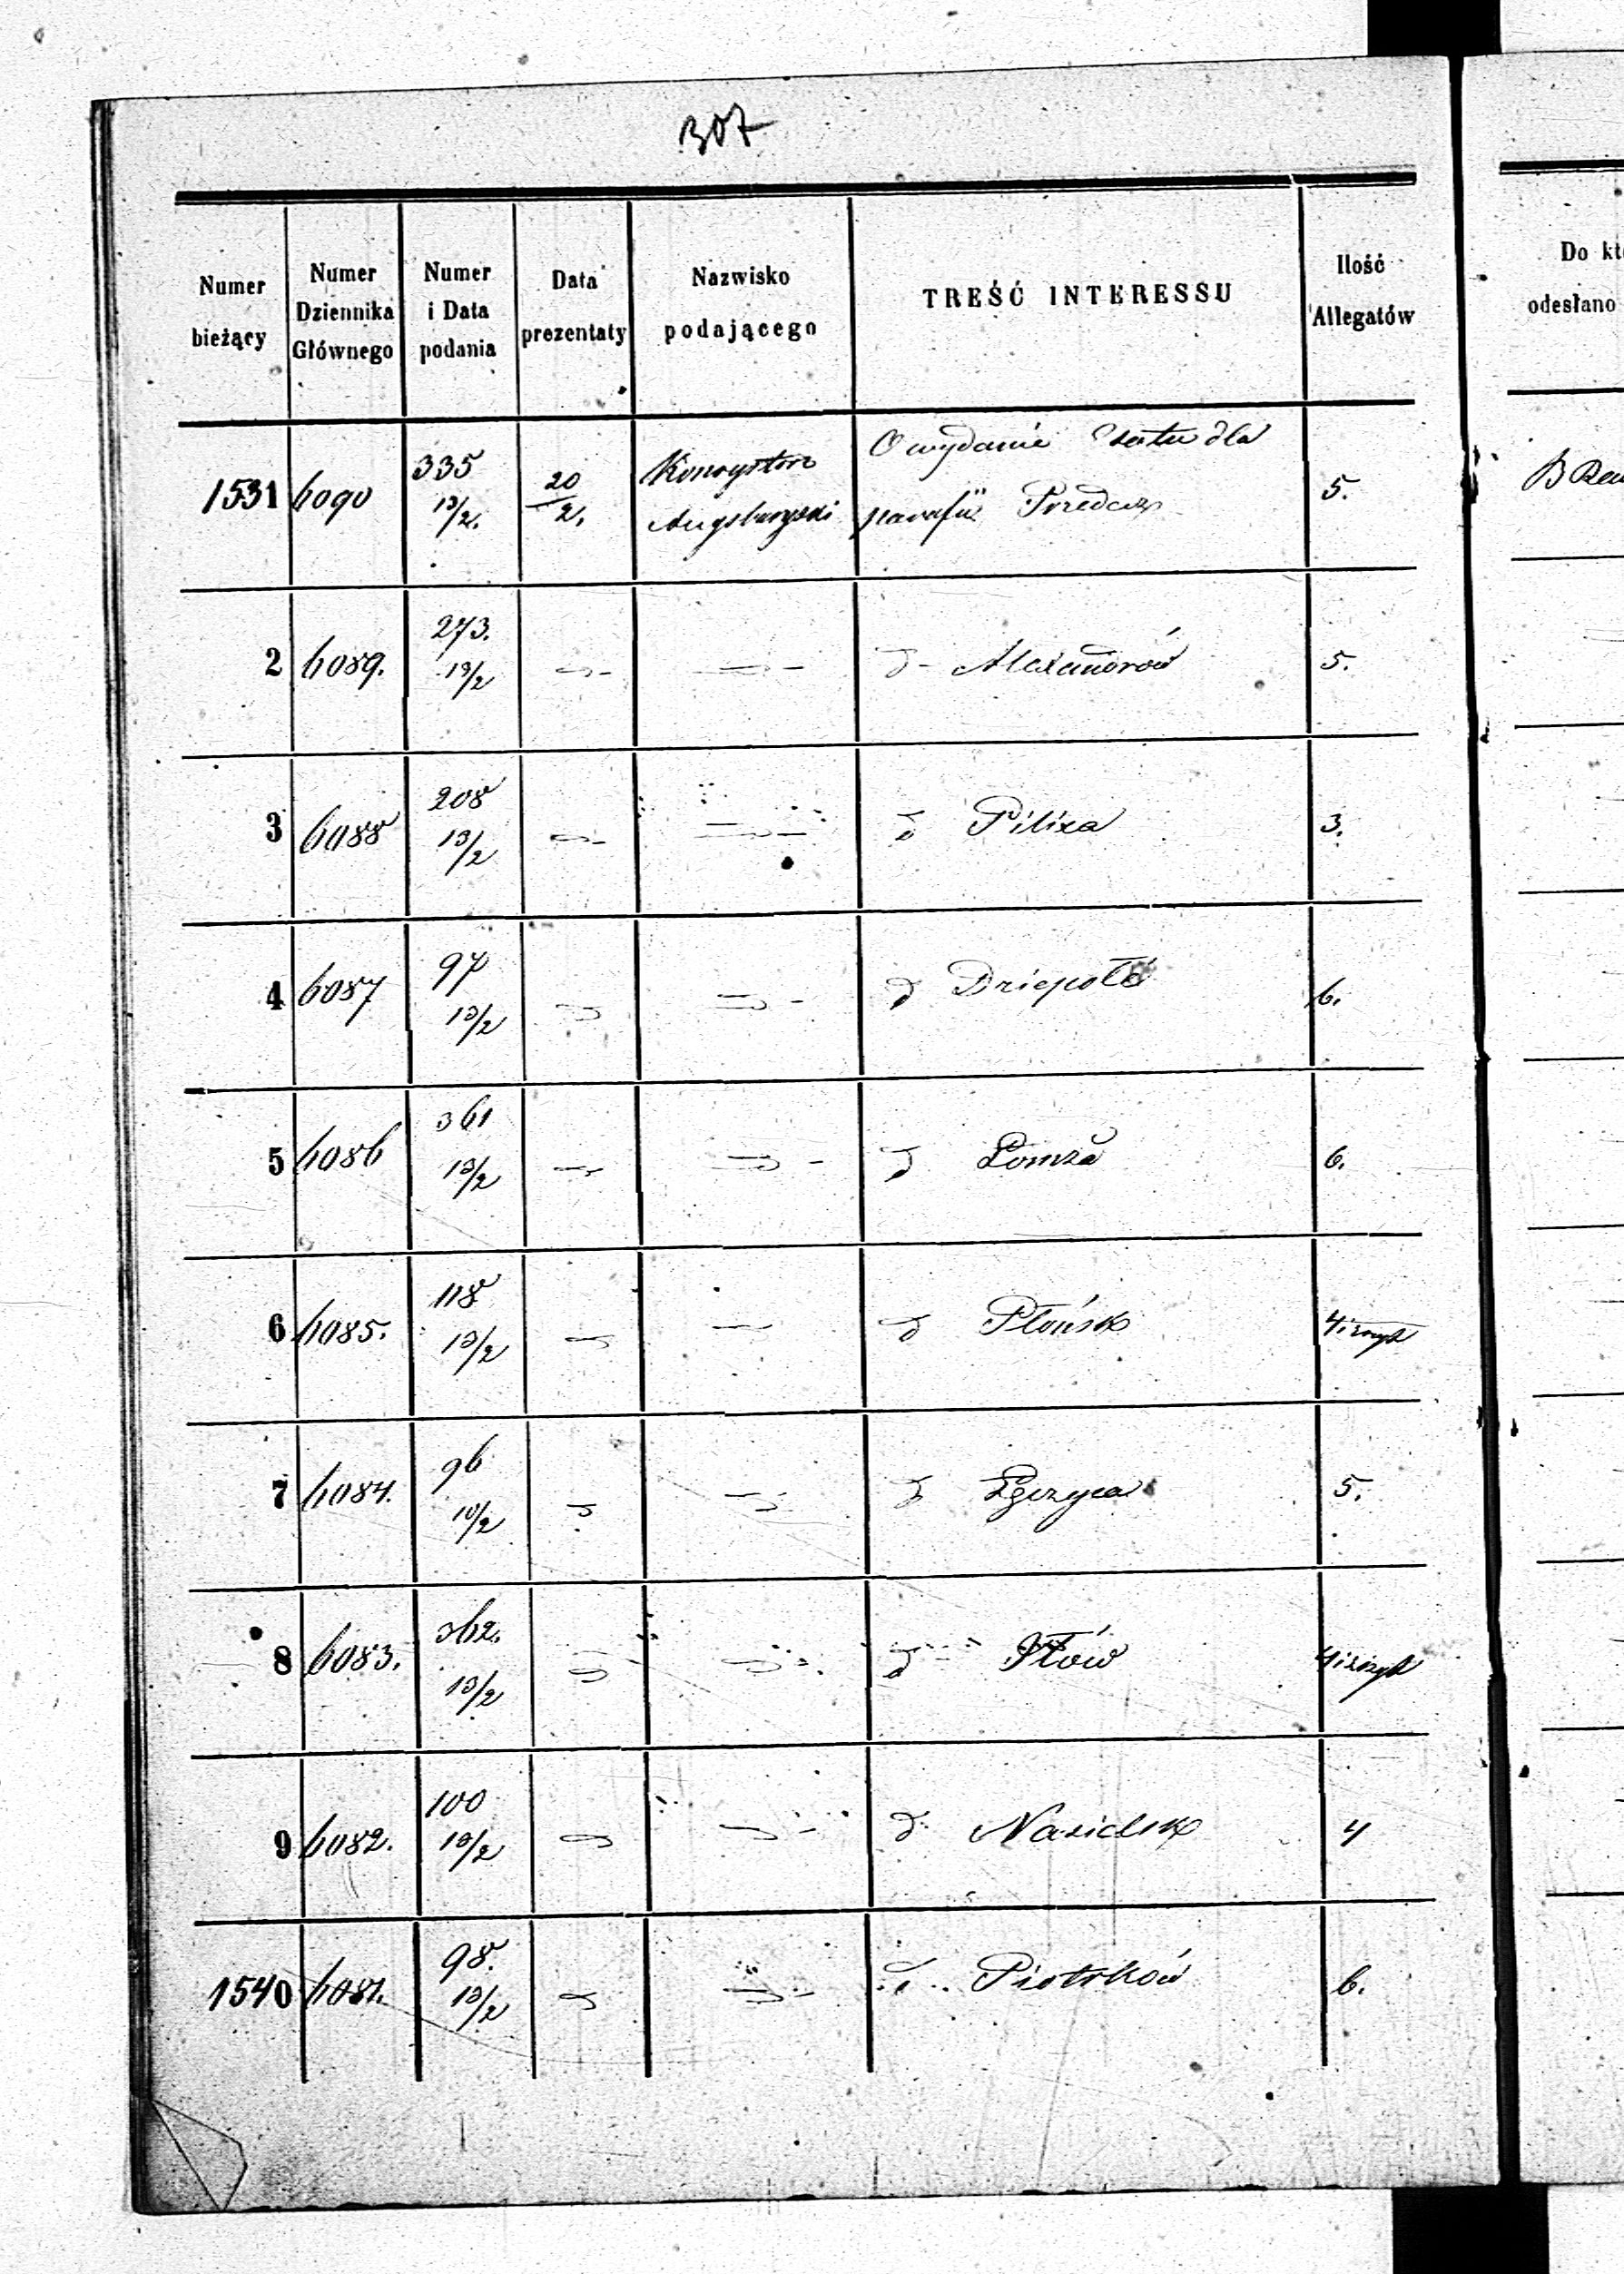 307
Numer bieżący
Numer Dziennika Głównego
Numer i Data podania
Data prezentaty
Nazwisko podającego
TREŚĆ INTERESSU
Ilość Allegatów
Do kt
odesłano
1531 6090 335 13/2. 20/2. Konsystorz Augsburgski O wydanie Etatu dla parafii Przedcz 5.
2 6089. 273. 13/2 d - Alexandrów 5.
3 6088 208 13/2 d Pilica 3.
4 6087 97 13/2 d 6.
5 6086 361 13/2 d Łomża 6.
6 6085. 118 13/2 d Płońsk
7 6084. 96 13/2 d Łęczyca 5.
8 6083. 362. 13/2 d Iłów
9 6082. 100 13/2 d Nasielsk 4
1540 6081. 98. 13/2 d Piotrków 6.